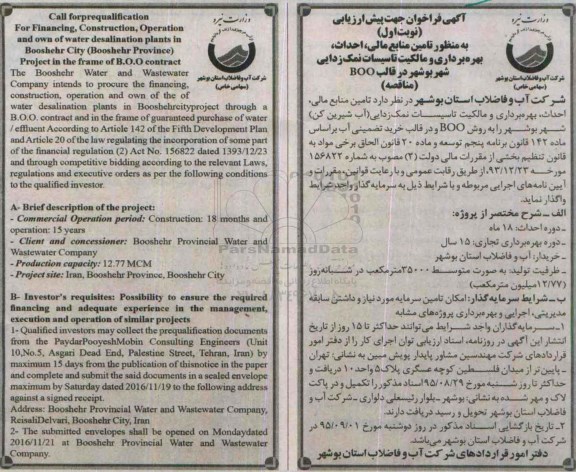 Call forprequalification
For Financing, Construction, Operation
and own of water desalination plants in
Booshehr City (Booshehr Province)
Project in the frame of B.O.O contract
وزارت نیرو
شرکت آب و فاضلاب استان بوشهر
(سهامی خاص)
The Booshehr Water and Wastewater
Company intends to procure the financing,
construction, operation and own of the of
water desalination plants in Booshehrcityproject through a
B.O.O. contract and in the frame of guaranteed purchase of water
/ effluent According to Article 142 of the Fifth Development Plan
and Article 20 of the law regulating the incorporation of some part
of the financial regulation (2) Act No. 156822 dated 1393/12/23
and through competitive bidding according to the relevant Laws,
regulations and executive orders as per the following conditions
to the qualified investor.
A- Brief description of the project:
- Commercial Operation period: Construction: 18 months and
operation: 15 years
- Client and concessioner: Booshehr Provincial Water and
Wastewater Company
- Production capacity: 12.77 MCM
- Project site: Iran, Booshehr Province, Booshehr City
B- Investor's requisites: Possibility to ensure the required
financing and adequate experience in the management,
execution and operation of similar projects
1- Qualified investors may collect the prequalification documents
from the PaydarPooyeshMobin Consulting Engineers (Unit
10,No.5, Asgari Dead End, Palestine Street, Tehran, Iran) by
maximum 15 days from the publication of thisnotice in the paper
and complete and submit the said documents in a sealed envelope
maximum by Saturday dated 2016/11/19 to the following address
against a signed receipt.
Address: Booshehr Provincial Water and Wastewater Company,
ReisaliDelvari, Booshehr City, Iran
2- The submitted envelopes shall be opened on Mondaydated
2016/11/21 at Booshehr Provincial Water and Wastewater
Company.
آگهی فراخوان جهت پیش ارزیابی
(نوبت اول)
به منظور تامین منابع مالی، احداث،
بهره برداری و مالکیت تاسیسات نمک زدایی
شهر بوشهر در قالب BOO
(مناقصه)
وزارت نیرو
شرکت آب و فاضلاب استان بوشهر
(سهامی خاص)
شرکت آب و فاضلاب استان بوشهر در نظر دارد تامین منابع مالی،
احداث، بهره‌برداری و مالکیت تاسیسات نمک‌زدایی (آب شیرین کن)
شهر بوشهر را به روش BOO و در قالب خرید تضمینی آب براساس
ماده ۱۴۲ قانون برنامه پنجم توسعه و ماده ۲۰ قانون الحاق برخی مواد به
قانون تنظیم بخشی از مقررات مالی دولت (۲) مصوب به شماره ۱۵۶۸۲۲
مورخه ۹۳/۱۲/۲۳، از طریق رقابت عمومی و با رعایت قوانین، مقررات و
آیین نامه‌های اجرایی مربوطه و با شرایط ذیل به سرمایه گذار واجد شرایط
واگذار نماید.
الف - شرح مختصر از پروژه:
- دوره احداث: ۱۸ ماه
- دوره بهره‌برداری تجاری: ۱۵ سال
- خریدار: آب و فاضلاب استان بوشهر
- ظرفیت تولید: به صورت متوسط ۳۵۰۰۰ مترمکعب در شبانه‌روز
(۱۲/۷۷ میلیون مترمکعب)
ب - شرایط سرمایه گذار: امکان تامین سرمایه مورد نیاز و داشتن سابقه
مدیریتی، اجرایی و بهره‌برداری پروژه‌های مشابه
۱- سرمایه‌گذاران واجد شرایط می‌توانند حداکثر تا ۱۵ روز از تاریخ
انتشار این آگهی در روزنامه، اسناد ارزیابی توان اجرای کار را از دفتر امور
قراردادهای شرکت مهندسین مشاور پایدار پویش مبین به نشانی: تهران
- پایین تر از میدان فلسطین کوچه عسگری پلاک ۵ واحد ۱۰ دریافت و
حداکثر تا روز شنبه مورخ ۹۵/۰۸/۲۹ اسناد مذکور را تکمیل و در پاکت
لاک و مهر شده به نشانی: بوشهر - بلوار رئیسعلی دلواری - شرکت آب و
فاضلاب استان بوشهر تحویل و رسید دریافت دارند.
۲- تاریخ بازگشایی اسناد مذکور در روز دوشنبه مورخ ۹۵/۰۹/۰۱ در
شرکت آب و فاضلاب استان بوشهر می‌باشد.
دفتر امور قراردادهای شرکت آب و فاضلاب استان بوشهر
ParsNamadData